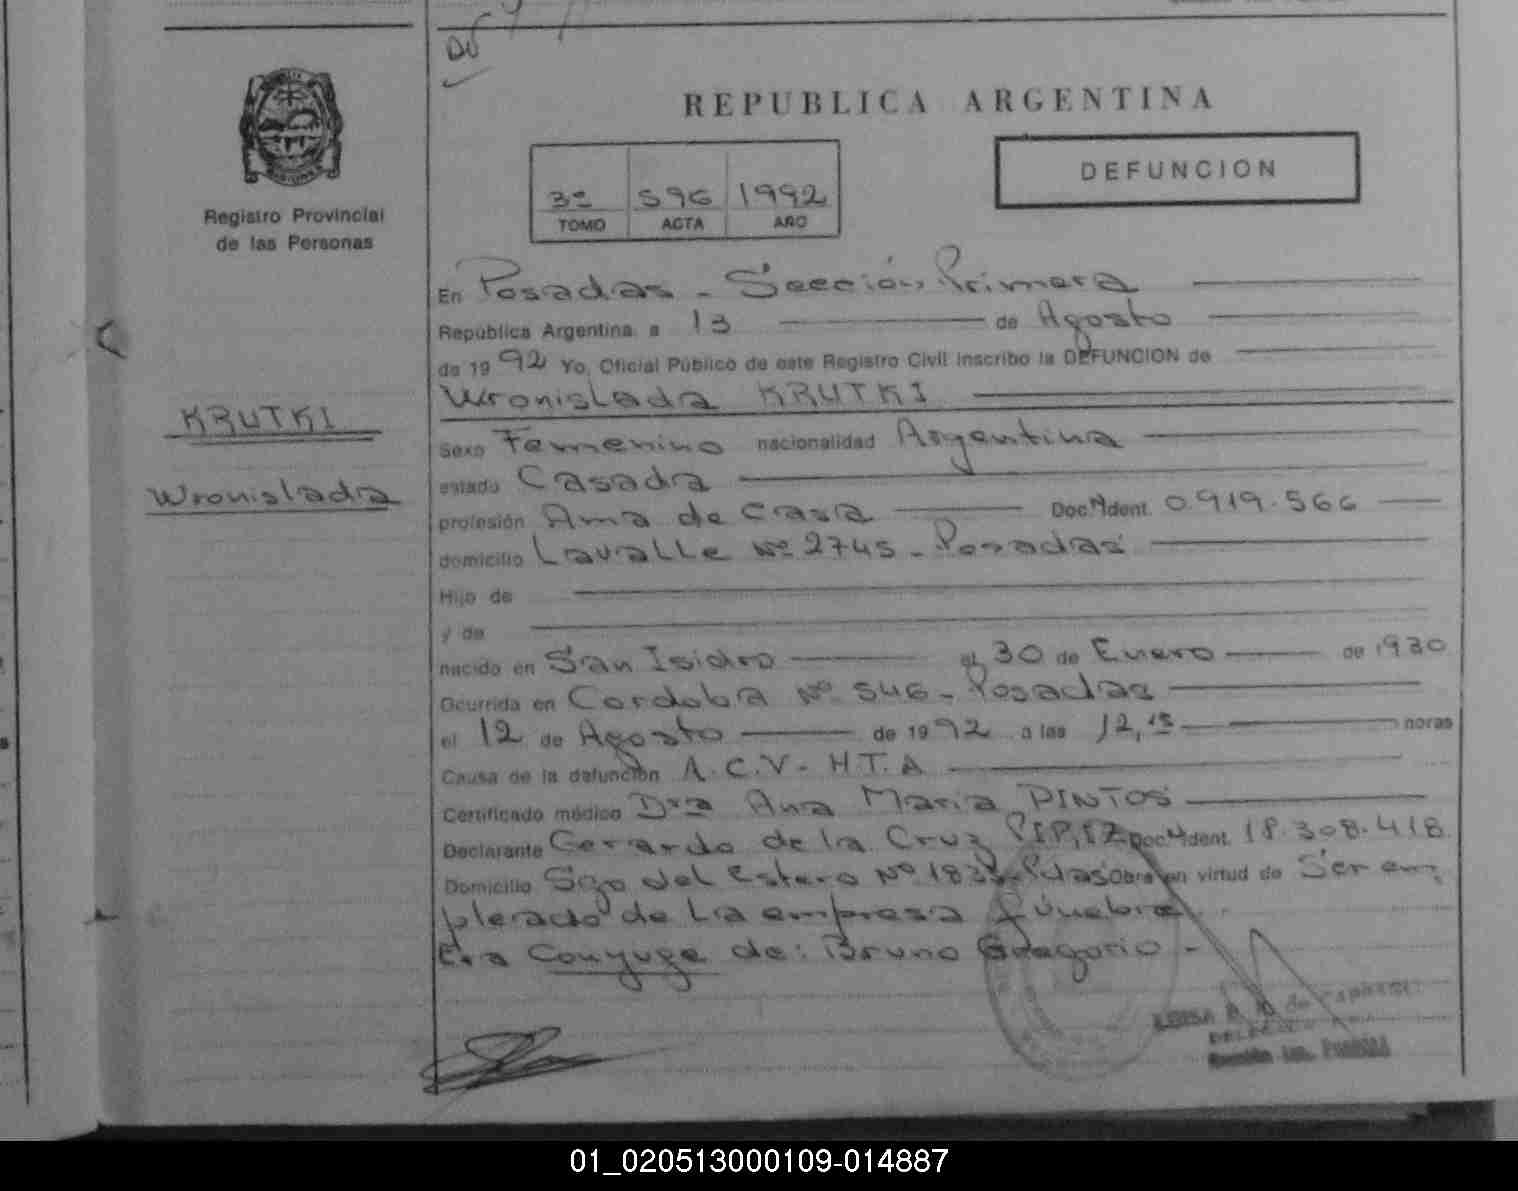 DV
REPUBLICA ARGENTINA
DEFUNCION
3º 596 1992
TOMO ACTA AÑO
Registro Provincial
de las Personas
KRUTKI
Wronislada
En Posadas - Sección Primera
República Argentina a 13 de Agosto
de 1992 Yo, Oficial Público de este Registro Civil inscribo la DEFUNCION de
Wronislada KRUTKI
Sexo Femenino nacionalidad Argentina
estado Casada
profesión Ama de Casa Doc. Ident. 0.919.566
domicilio Lavalle Nº 2745 - Posadas
Hijo de
y de
nacido en San Isidro el 30 de Enero de 1930
Ocurrida en Cordoba Nº 546 - Posadas
el 12 de Agosto de 1992 a las 12,15 horas
Causa de la defunción A.C.V - H.T.A
Certificado médico Dra Ana Maria PINTOS
Declarante Gerardo de la Cruz Doc. Ident. 18.308.418
Domicilio Sgo del Estero Nº Pdas Obra en virtud de Ser em-
pleado de La empresa fúnebre
Era Conyuge de: Bruno Gregorio -
01_020513000109-014887